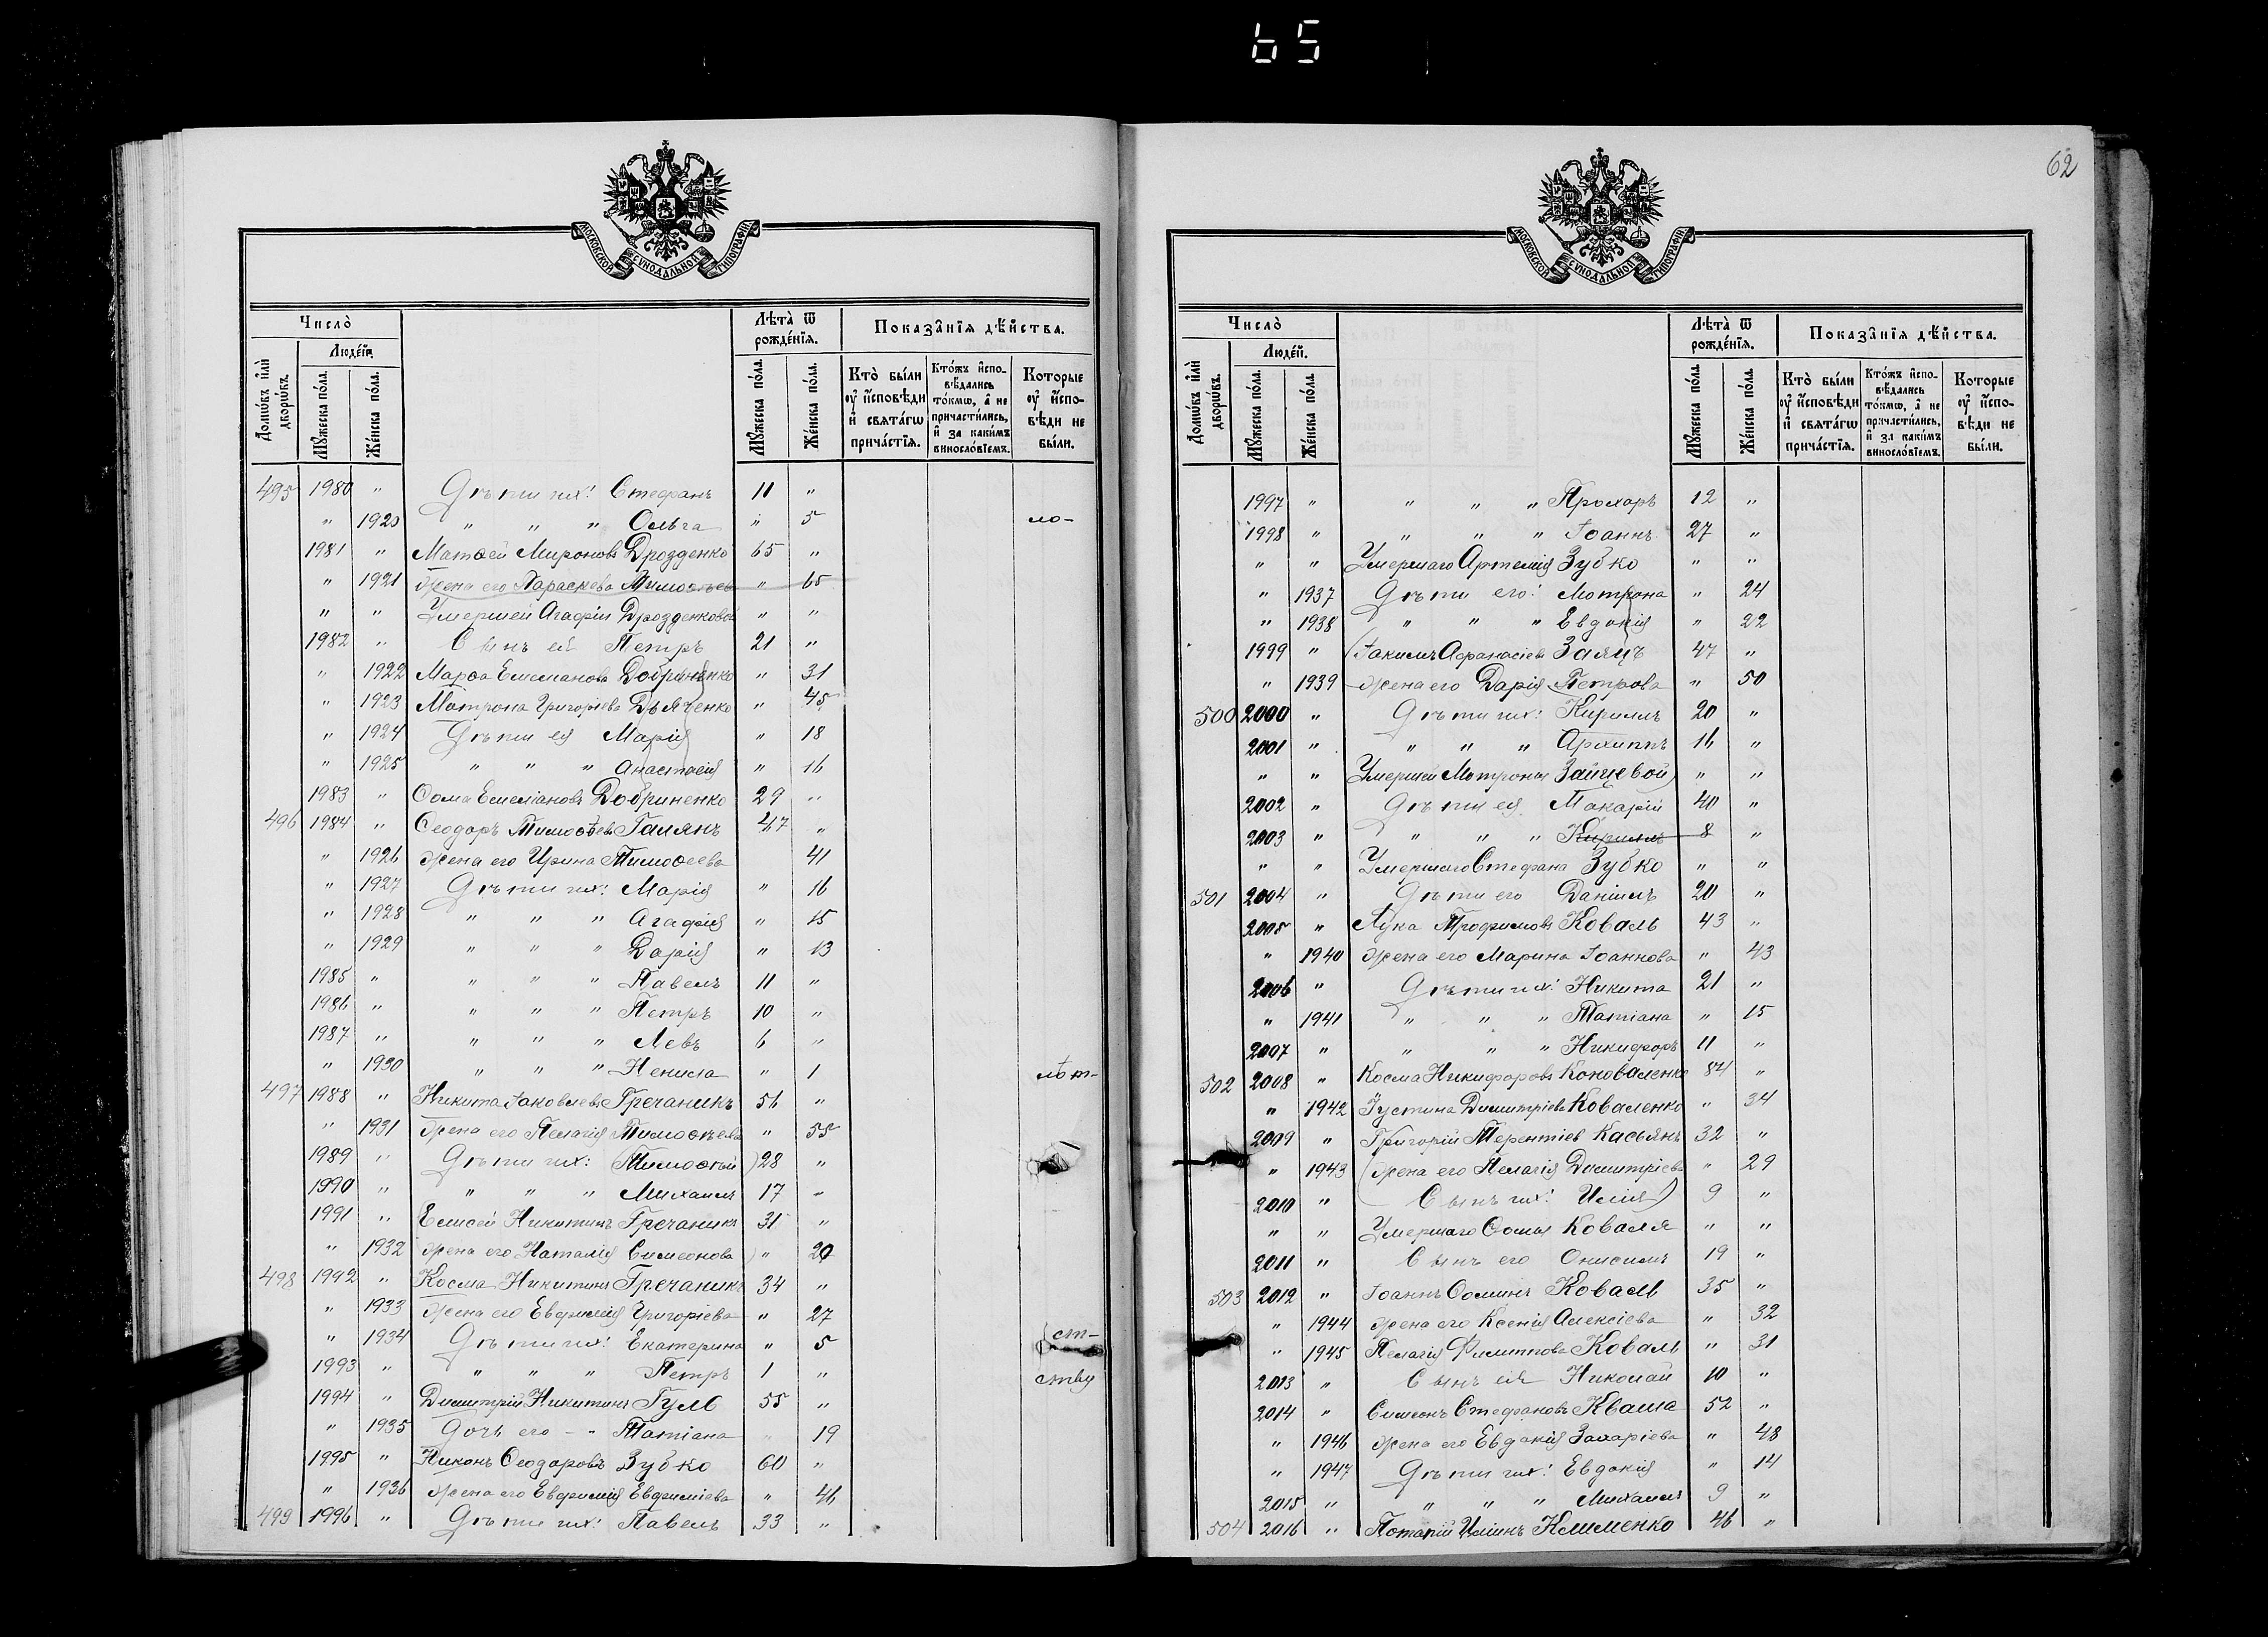 65
МОСКОВСКОЙ СѴНОДАЛЬНОЙ ТИПОГРАФІИ
Число̀
Людéй.
Домѡ́въ и҆лѝ дворѡ́въ.
Мꙋ́жеска по́ла.
Же́нска по́ла.
Лѣ́та ѿ рождéнїѧ.
Мꙋ́жеска по́ла.
Же́нска по́ла.
Показа̑нїѧ дѣ́йства.
Кто̀ бы́ли ᲂу҆ и҆сповѣди и҆ свѧта́гѡ прича́стїѧ.
Кто́жъ и҆сповѣ́дались то́кмѡ, а҆ не причасти́лись, и҆ за каки́мъ винослóвїемъ.
Которые ᲂу҆ и҆сповѣди не бы́ли.
495 1980 " Дѣти ихъ: Стефанъ 11 "
" 1920 " " " Ольга " 5 ло-
1981 " Матѳей Мироновъ Дрозденко 65 "
" 1921 Жена его Параскева Тимоѳѣева " 65
" " Умершей Агафіи Дрозденковой " "
1982 " Сынъ ея Петръ 21 "
" 1922 Марѳа Емеліанова Добриненко " 31
" 1923 Матрона Григоріева Дьяченко " 45
" 1924 Дѣти ея Марія " 18
" 1925 " " " Анастасія " 16
1983 " Ѳома Емеліановъ Добриненко 29 "
496 1984 " Ѳеодоръ Тимоѳѣевъ Галянъ 47 "
" 1926 Жена его Ирина Тимоѳеева 41
" 1927 Дѣти ихъ: Марія " 16
" 1928 " " " Агафія " 15
" 1929 " " " Дарія " 13
1985 " " " " Павелъ 11 "
1986 " " " " Петръ 10 "
1987 " " " " Левъ 6 "
" 1930 " " " Ненила " 1 лѣт-
497 1988 " Никита Іаковлевъ Гречаникъ 56 "
" 1931 Жена его Пелагія Тимоѳѣева " 55
1989 " Дѣти ихъ: (Тимоѳѣй) 28 "
1990 " " " " Михаилъ 17 "
1991 " Елисей Никитинъ Гречаникъ 31 "
" 1932 Жена его Наталія Симеонова " 29
498 1992 " Косма Никитинъ Гречаникъ 34 "
" 1933 Жена его Евфимія Григоріева " 27
" 1934 Дѣти ихъ: Екатерина " 5 ст-
1993 " " " " Петръ 1 " ству
1994 " Димитрій Никитинъ Гуль 55 "
" 1935 Дочь его - " Татіана " 19
1995 " Никонъ Ѳеодоровъ Зубко 60 "
" 1936 Жена его Евфимія Евфиміева " 46
499 1996 " Дѣти ихъ: Павелъ 33 "
62
МОСКОВСКОЙ СѴНОДАЛЬНОЙ ТИПОГРАФІИ
Число̀
Людéй.
Домѡ́въ и҆лѝ дворѡ́въ.
Мꙋ́жеска по́ла.
Же́нска по́ла.
Лѣ́та ѿ рождéнїѧ.
Мꙋ́жеска по́ла
Же́нска по́ла.
Показа̑нїѧ дѣ́йства.
Кто̀ бы́ли ᲂу҆ и҆сповѣди и҆ свѧта́гѡ прича́стїѧ.
Кто́жъ и҆сповѣ́дались то́кмѡ, а҆ не причасти́лись, и҆ за каки́мъ винослóвїемъ.
Которые ᲂу҆ и҆сповѣди не бы́ли.
1997 " " " " Прохоръ 12 "
1998 " " " " Іоаннъ 27 "
" " Умершаго Артемія Зубко " "
" 1937 Дѣти его: Матрона " 24
" 1938 " " " Евдокія " 22
1999 " (Іакимъ Афанасіевъ Заяцъ 47 "
" 1939 Жена его Дарія Петрова " 50
500 2000 " Дѣти ихъ: Кириллъ 20 "
2001 " " " " Архиппъ 16 "
" " Умершей Матроны Зайцевой) " "
2002 " Дѣти ея Макарій 40 "
2003 " " " " Кириллъ 8 "
" " Умершаго Стефана Зубко " "
501 2004 " Дѣти его Даніилъ 20 "
2005 " Лука Трофимовъ Коваль 43 "
" 1940 Жена его Марина Іоаннова " 43
2006 " Дѣти ихъ: Никита 21 "
" 1941 " " " Татіана " 15
2007 " " " " Никифоръ 11 "
502 2008 " Косма Никифоровъ Коноваленко 84 "
" 1942 Іустина Димитріева Коваленко " 34
2009 " Григорій Терентіевъ Касьянъ 32 "
" 1943 (Жена его Пелагія Димитріева " 29
2010 " Сынъ ихъ: Илія) 9 "
" " Умершаго Ѳомы Коваля " "
2011 " Сынъ его Онисимъ 19 "
503 2012 " Іоаннъ Ѳоминъ Коваль 35 "
" 1944 Жена его Ксенія Алексіева " 32
" 1945 Пелагія Филиппова Коваль " 31
2013 " Сынъ ея Николай 10 "
2014 " Симеонъ Стефановъ Кваша 52 "
" 1946 Жена его Евдокія Захаріева " 48
" 1947 Дѣти ихъ: Евдокія " 14
2015 " " " " Михаилъ 9 "
504 2016 " Потапій Иліинъ Клименко 46 "